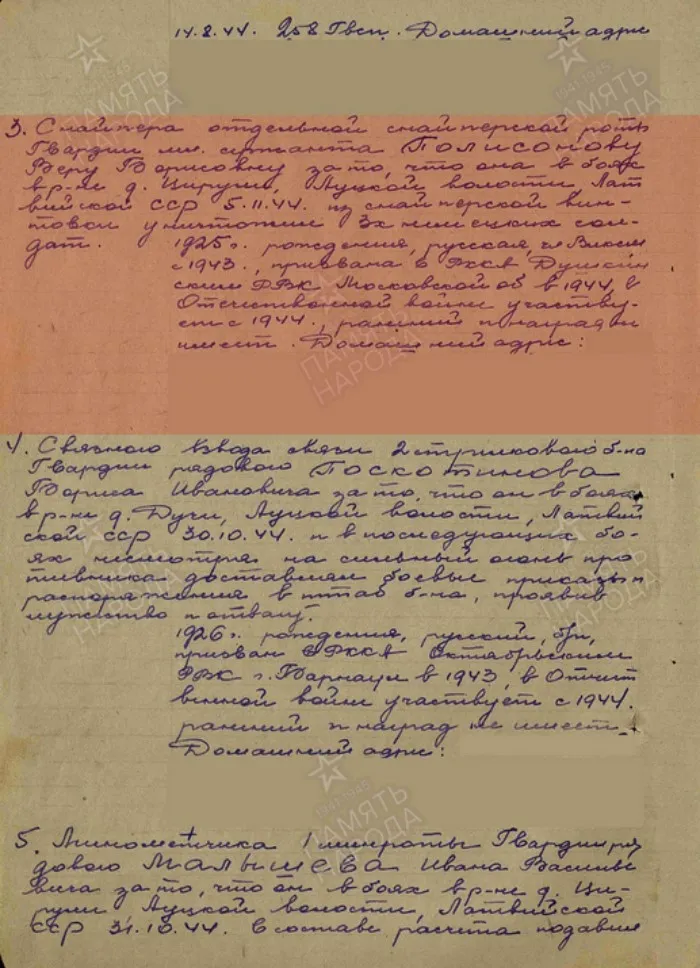 14.8.44. 258 Гвсп. Домашний адрес
3. Снайпера отдельной снайперской роты
Гвардии мл. сержанта Полисонову
Веру Борисовну за то, что она в боях
в р-не д. Цируши, Луцкой волости, Лат
вийской ССР 5.11.44. из снайперской вин-
товки уничтожила 3х немецких сол-
дат.
1925 г. рождения, русская, чл. Влксм
с 1943., призвана в РККА
ским РВК Московской об в 1944, в
Отечественной войне участву-
ет с 1944., ранений и наград не
имеет. Домашний адрес:
4. Связного взвода связи 2 стрелкового б-на
Гвардии рядового Поскотинова
Бориса Ивановича за то, что он в боях
в р-не д. Дучи, Луцкой волости, Латвий
ской ССР 30.10.44. и в последующих бо-
ях несмотря на сильный огонь про
тивника доставлял боевые приказы и
распоряжения в штаб б-на, проявив
мужество и отвагу.
1926 г. рождения, русский, б/п,
призван в РККА Октябрьским
РВК г. Барнаул в 1943, в Отечест
венной войне участвует с 1944.
ранений и наград не имеет.
Домашний адрес:
5. Минометчика 1 минроты Гвардии ря
дового Малышева Ивана Василье
вича за то, что он в боях в р-не д. Ци-
руши Луцкой волости, Латвийской
ССР 31.10.44. в составе расчета подавил
ПАМЯТЬ
НАРОДА
1941-1945